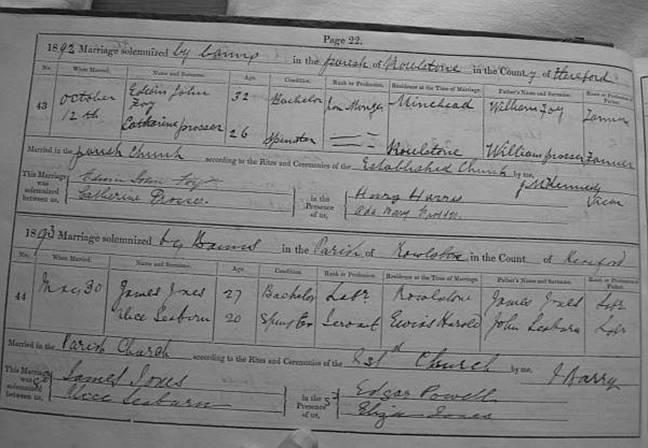 Page 22.
1892 Marriage solemnized by banns in the parish of Rowlstone in the County of Hereford
No. When Married. Name and Surname. Age. Condition. Rank or Profession. Residence at the Time of Marriage. Father's Name and Surname. Rank or Profession of Father.
43 October 12th Edwin John Foy 32 Bachelor Iron Monger Minehead William Foy Farmer
Catharine prosser 26 Spinster Rowlstone William prosser Farmer
Married in the parish Church according to the Rites and Ceremonies of the Established Church by me, Kennedy Vicar
This Marriage was solemnized between us, Edwin John Foy
Catherine Prosser
in the Presence of us, Henry Harris
Ada Mary
1893 Marriage solemnized by Banns in the Parish of Rowlstone in the Count of Hereford
No. When Married. Name and Surname. Age. Condition. Rank or Profession. Residence at the Time of Marriage. Father's Name and Surname. Rank or Profession of Father.
44 May 30 James Jones 27 Bachelor Labr Rowlstone James Jones Labr
Alice Seaburn 20 Spinster Servant Ewias Harold John Seaburn Labr
Married in the Parish Church according to the Rites and Ceremonies of the Estd Church by me, J Barry
This Marriage was solemnized between us, James Jones
Alice Seaburn
in the Presence of us, Edgar Powell
Eliza Jones